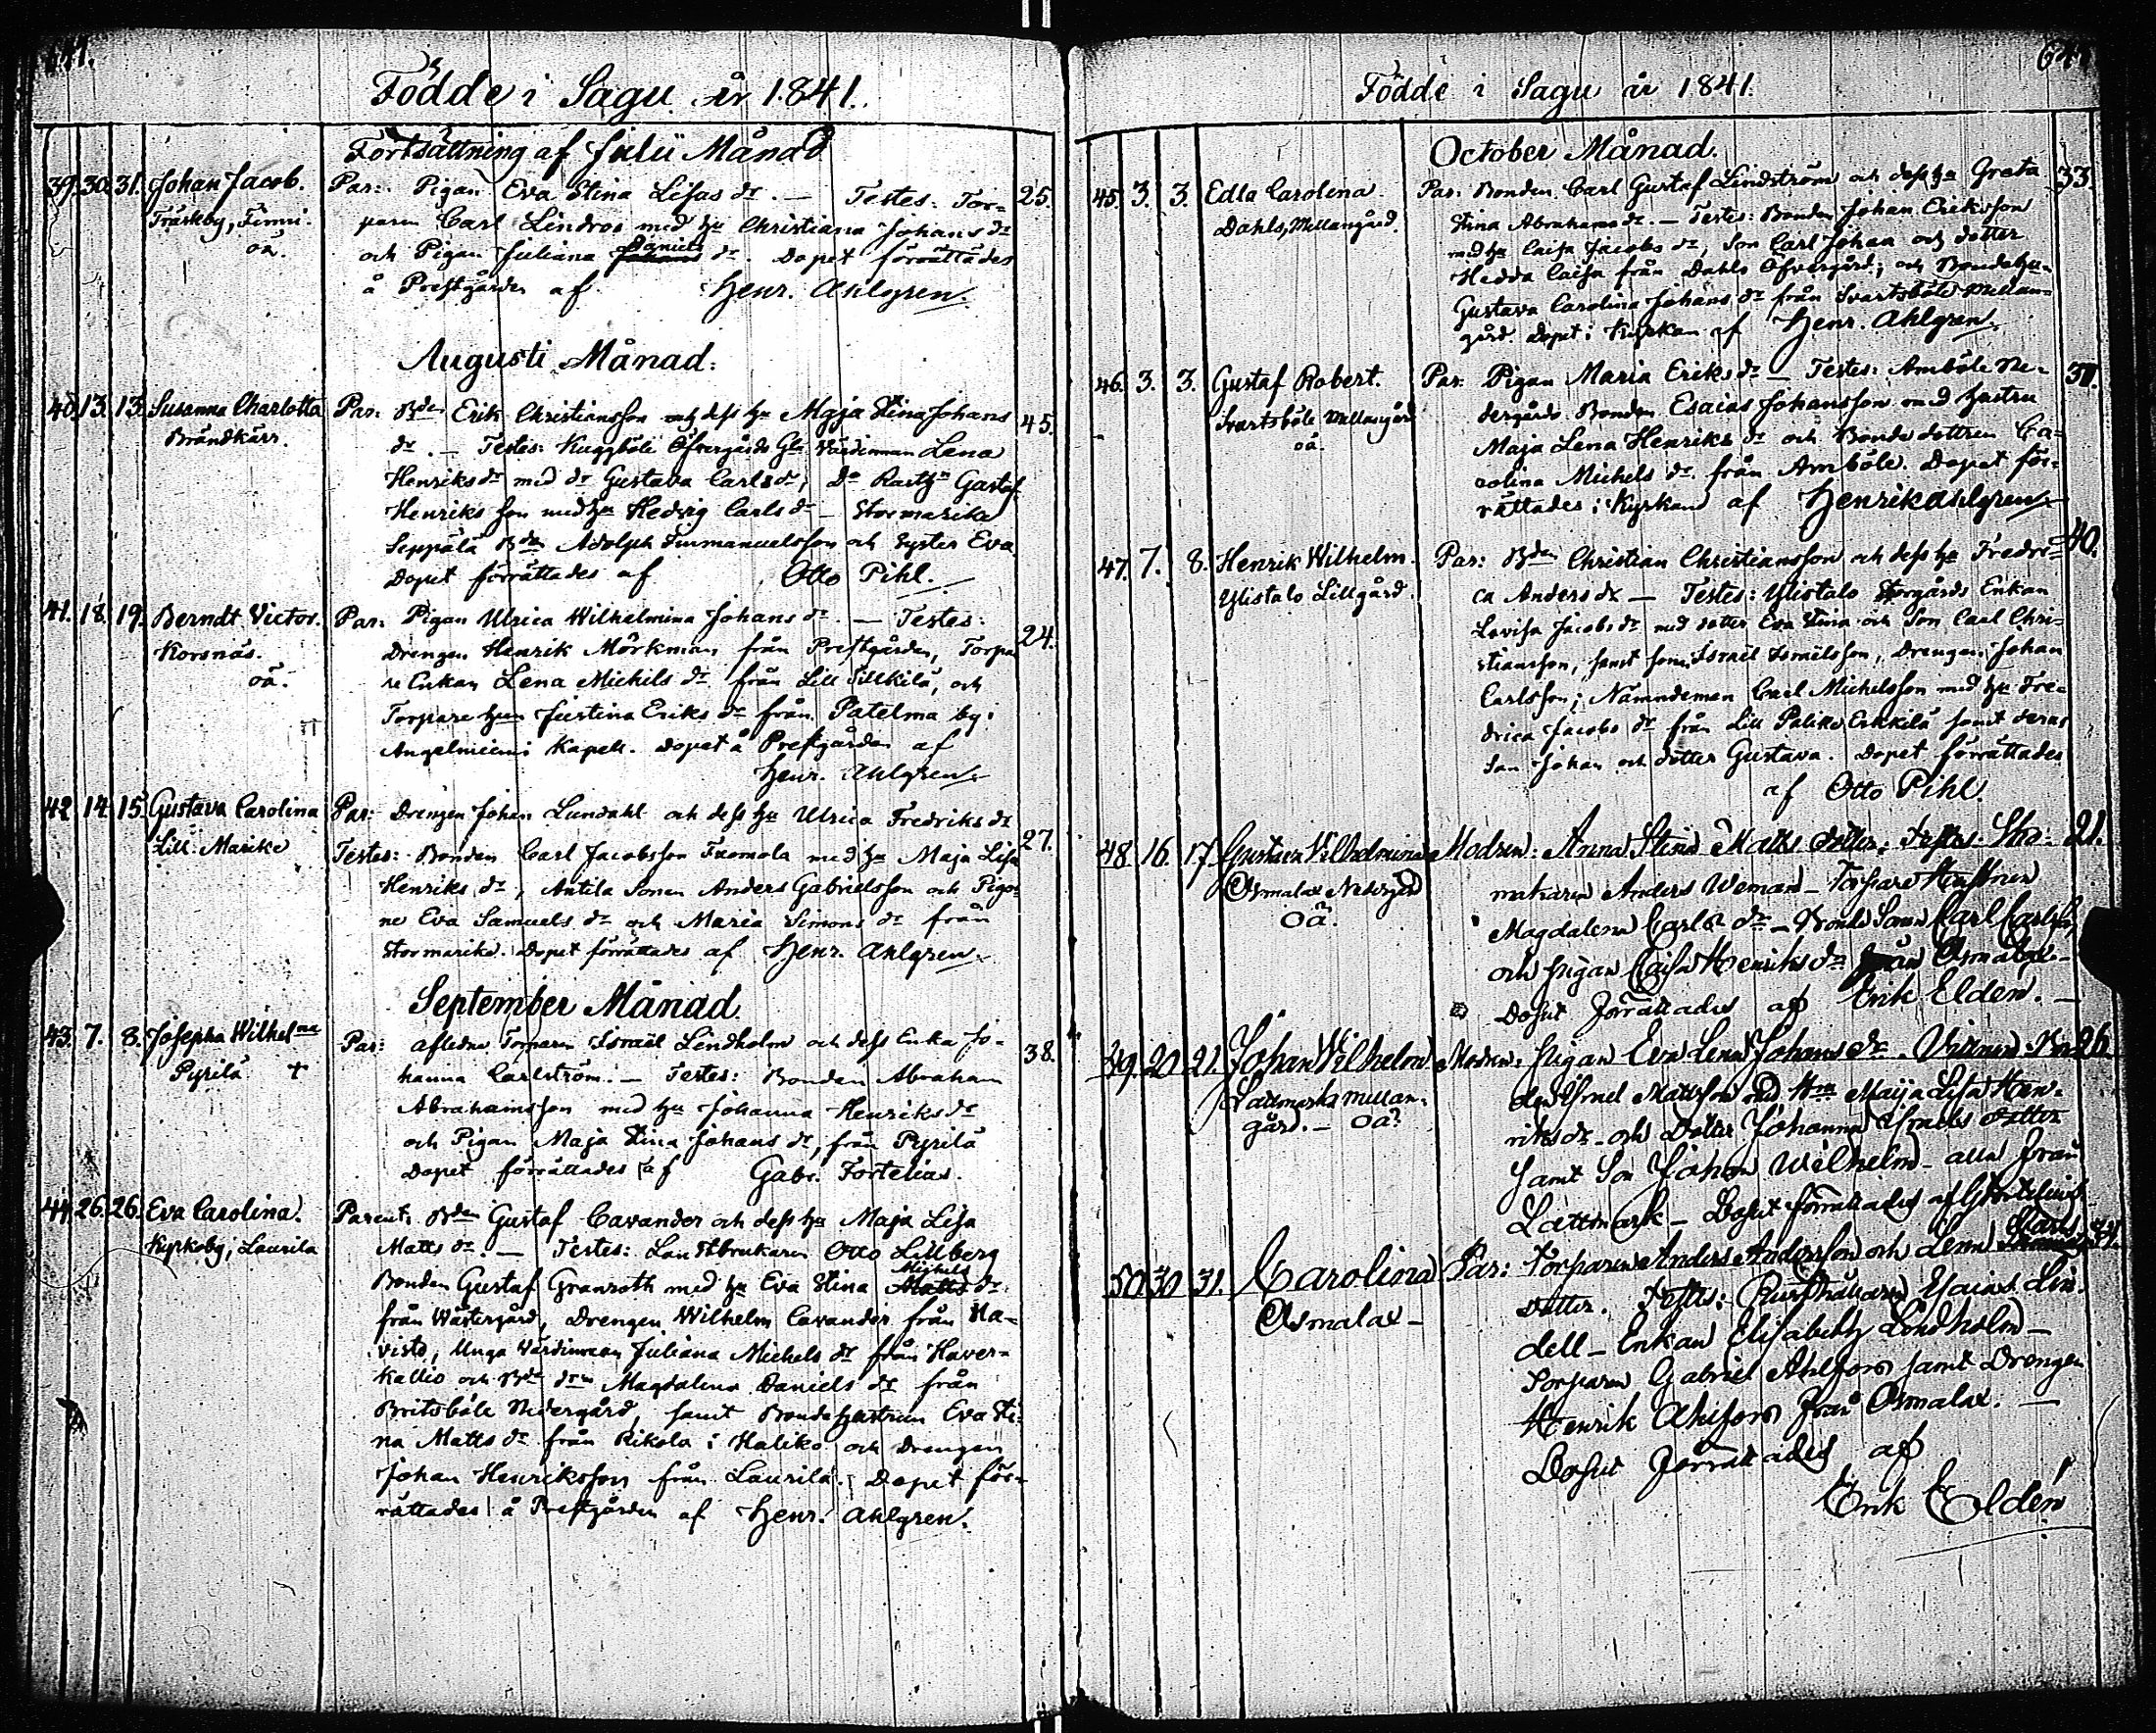 Födde i Sagu år 1841.
Fortsättning af Julii Månad
39. 30. 31. Johan Jacob. Par: Pigan Eva Stina Lisas dr. — Testes: Tor- 25.
Träskby, Finni. paren Carl Lindros med hu Christiana Johans dr
oä. och Pigan Juliana Daniels dr. Dopet förrättades
å Prestgården af Henr. Ahlgren.
Augusti Månad.
40. 13. 13. Susanna Charlotta Par: Bden Erik Christiansson och dess hu Maja Stina Johans 45.
Brändkärr. dr. — Testes: Kuggböle Öfvergårds Gla Värdinnan Lena
Henriks dr med dr Gustava Carls dr, Do Gustaf
Henriksson med hu Hedvig Carls dr — Stormarike
Seppälä Bden Adolph Emmanuelsson och syster Eva
Dopet förrättades af Otto Pihl.
41. 18. 19. Berndt Victor. Par: Pigan Ulrica Wilhelmina Johans dr. — Testes: 24.
Korsnäs. Drengen Henrik Mörkman från Prestgården, Torpa
oä. re Enkan Lena Michils dr från Lill Sillkilä, och
Torpare hun Justina Eriks dr från Patelma by i
Angelniemi Kapell. Dopet å Prestgården af
Henr. Ahlgren.
42. 14. 15. Gustava Carolina Par: Drengen Johan Lundahl och dess hu Ulrica Fredriks dr 27.
Lill Marike Testes: Bonden Carl Jacobsson Tromola med hu Maja Lisa
Henriks dr, Antila Sonen Anders Gabrielsson och Pigor
ne Eva Samuels dr och Maria Simons dr från
Stormarike. Dopet förrättades af Henr. Ahlgren.
September Månad
43. 7. 8. Josepha Wilhelma Par: afledne Torparen Israël Lindholm och dess Enka Jo- 38.
Pyrilä + hanna Carlström. — Testes: Bonden Abraham
Abrahamsson med hu Johanna Henriks dr
och Pigan Maja Stina Johans dr, från Pyrilä
Dopet förrättades af Gabr. Fortelius.
44. 26. 26. Eva Carolina. Parent: Bden Gustaf Cavander och dess hu Maja Lisa
Kyrkoby, Laurila Matts dr. — Testes: Landtbrukaren Otto Lillberg
Bonden Gustaf Granroth med hu Eva Stina Michels dr
från Wästergård, Drengen Wilhelm Cavander från Ha-
visto, Unga Wärdinnan Juliana Michels dr från Haver-
kallio och Bde dren Magdalena Daniels dr från
Britsböle Nedergård, samt Bondehustrun Eva Sti-
na Matts dr från Rikola i Haliko och Drengen
Johan Henriksson från Laurila. Dopet för-
rättades å Prestgården af Henr. Ahlgren.
Födde i Sagu år 1841.
October Månad.
45. 3. 3. Edla Carolina Par: Bonden Carl Gustaf Lindström och dess hu Greta 33.
Dahls, Mellangård. Stina Abrahams dr. — Testes: Bonden Johan Eriksson
med hu Caisa Jacobs dr, Son Carl Johan och dotter
Hedda Caisa från Dahls Öfvergård; och Bondehu-
Gustava Carolina Johans dr från Svartsböle Mellan-
gård. Dopet i Kyrkan af Henr. Ahlgren.
46. 3. 3. Gustaf Robert. Par: Pigan Maria Eriks dr — Testes: Amböle Ne-
Svartsböle Mellangård dergårds Bonden Esaias Johansson med hustru
oä. Maja Lena Henriks dr och Bonde dottren Ca-
rolina Michels dr. från Amböle. Dopet för-
rättades i Kyrkan af Henrik Ahlgren.
47. 7. 8. Henrik Wilhelm. Par: Bden Christian Christiansson och dess hu Fredri- 40.
Ylistalo Lillgård. ca Anders dr — Testes: Ylistalo Storgårds Enkan
Lovisa Jacobs dr med dotter Eva Stina och Son Carl Chri-
stiansson, samt Israël Israëlsson, Drengen Johan
Carlsson; Nämndeman Carl Michelsson med hu Fre-
drica Jacobs dr från Lill Palike Erkkilä samt deras
Son Johan och dotter Gustava. Dopet förrättades
af Otto Pihl.
48. 16. 17. Gustava Vilhelmina Modren: Anna Stina Matts dotter: Testes: Sko- 21.
Osmalax Nedergård makaren Anders Weman — Torpare Hustrun
oä. Magdalena Carls dr — Bonde Sonen Carl Carlsson
och pigan Caisa Henriks dr från Osmalax —
Dopet förrättades af Erik Elden. —
49. 20. 21. Johan Vilhelm Modren: pigan Eva Lena Johans dr. Vittnen: Bon- 26
Lattmarks mellan- den Israel Mattsson med Hru Maija Lisa Hen-
gård. — oä. riks dr — och Dotter Johanna Israels dotter
samt Son Johan Wilhelm — alla från
Lattmark — Dopet förrättades af G Fortelius
50. 30. 31. Carolina Par: Torparen Anders Andersson och Lena Carls 34.
Osmalax — dotter. Testes: Rusthållaren Esaias Lin-
dell — Enkan Elisabeth Lindholm —
Torparen Gabriel Ahlfors samt Drengen
Henrik Ahlfors från Osmalax. —
Dopet förrättades af
Erik Elden